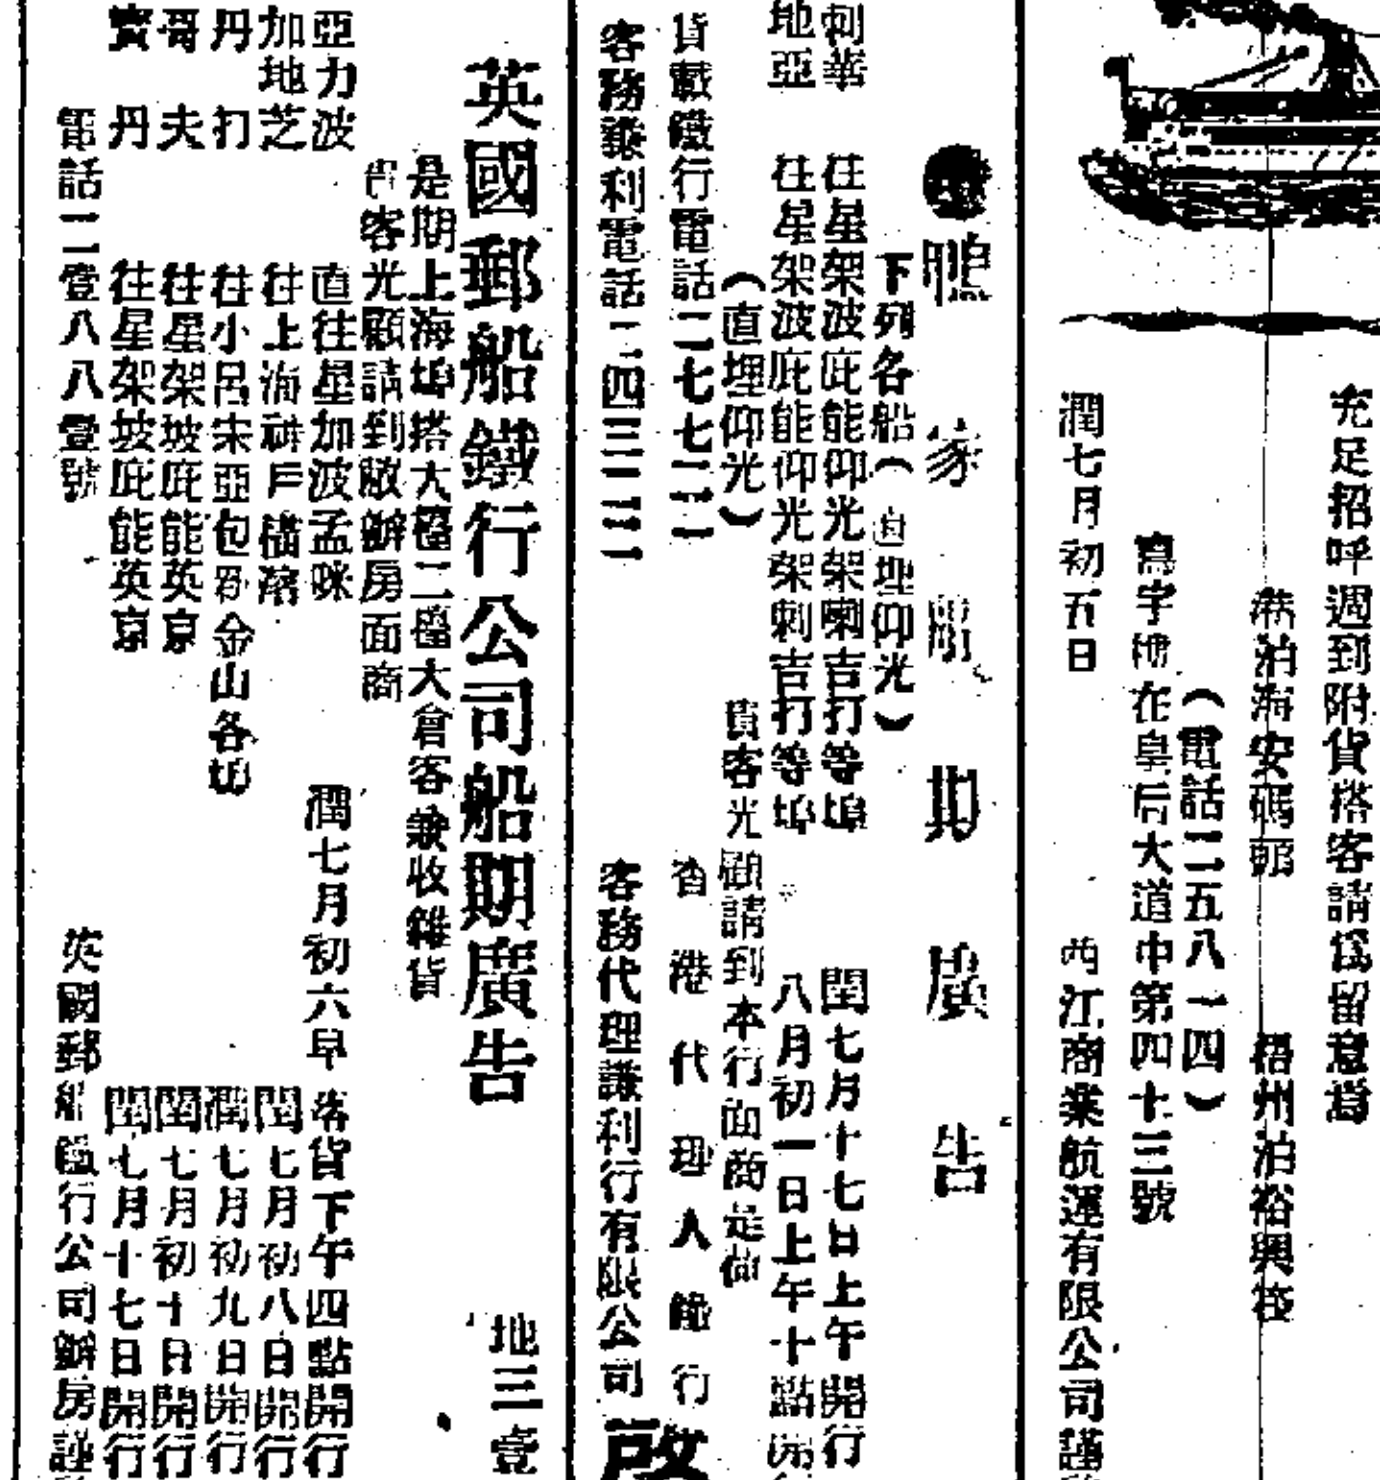 充足招呼週到附貨搭客請爲留意爲
港泊海安碼頭 梧州泊裕興棧
(電話二五八一四)
寫字樓在皇后大道中第四十三號
潤七月初五日 西江商業航運有限公司謹
鴨家船期廣告
下列各船(直埋仰光)
刺華 往星架波庇能仰光架喇吉打等埠 閏七月十七日上午開行
地亞 往星架波庇能仰光架刺吉打等埠 八月初一日上午十點開
(直埋仰光) 貴客光顧請到本行面商是荷
貨載鐵行電話二七七二一 香港代理人鐵行
客務謙利電話二四三三一 客務代理謙利行有限公司 啓
英國郵船鐵行公司船期廣告 地三壹
是期上海埠搭大艙二艙大倉客兼收雜貨
貴客光顧請到敝辦房面商
亞力波 直往星加波孟咪 潤七月初六早落貨下午四點開行
加地芝 往上海神戶橫濱 閏七月初八日開行
丹打 往小呂宋亞包新金山各埠 潤七月初九日開行
哥夫 往星架坡庇能英京 閏七月初十日開行
賓丹 往星架坡庇能英京 閏七月十七日開行
電話二壹八八壹號 英國郵船鐵行公司辦房謹